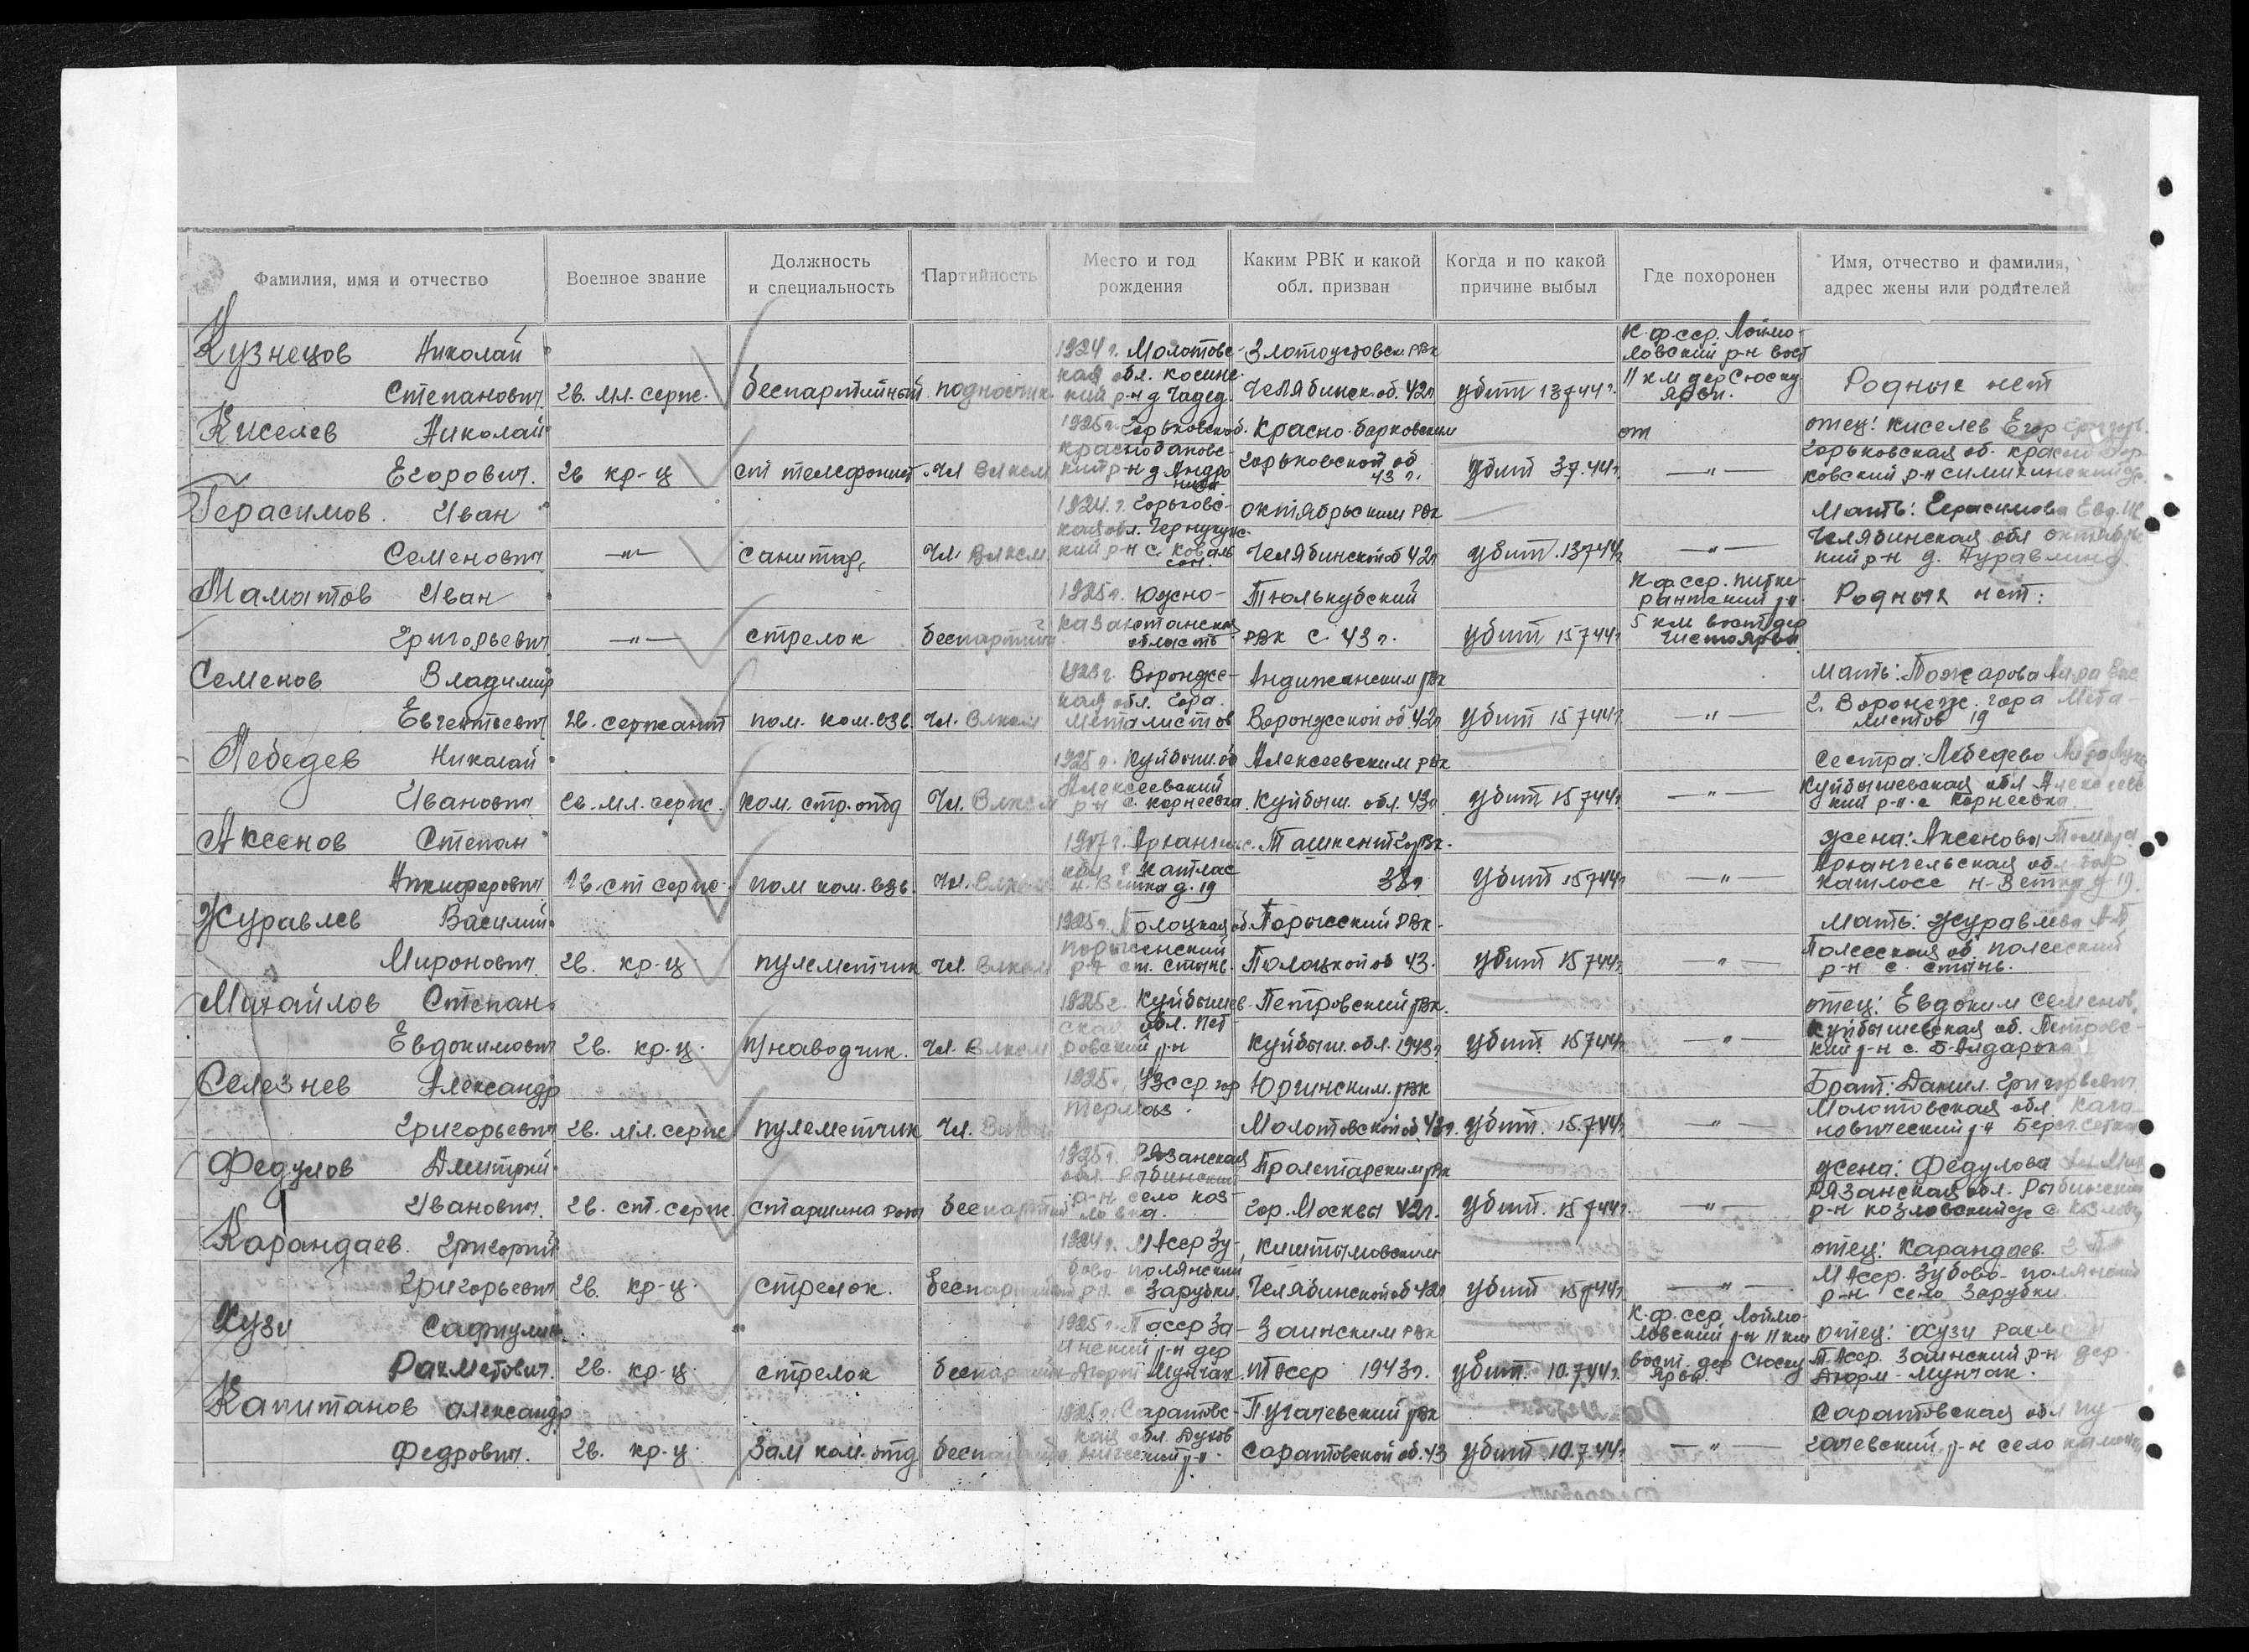 Фамилия, имя и отчество
Военное звание
Должность
и специальность
Партийность
Место и год
рождения
Каким РВК и какой
обл. призван
Когда и по какой
причине выбыл
Где похоронен
Имя, отчество и фамилия,
адрес жены или родителей
Кузнецов Николай
Степанович
гв. мл. серж.
беспартийный
подносчик
1924 г. Молотовс-
кая обл. косинс-
кий р-н д
Златоустовск РВК
Челябинск. об. 42г
убит 13744г.
К-ф.сср. Лоймо-
ловский р-н вост
11 км дер Сюску
ярви.
Родных нет
Киселев Николай
Егорович.
гв кр-ц
ст телефонист
Чл Влксм
1925г. Горьковск об.
Краснобаковс-
кий р-н д Андро
Красно-барковским
Горьковской об
43 г.
убит 37.44г.
от
— " —
отец: Киселев Егор
Горьковская об. красно бар-
ковский р-н
Герасимов. Иван
Семенович
— " —
санитар,
Чл. Влксм.
1924. г. Горьковс-
кая обл.
кий р-н с.
октябрьским РВК
Челябинской об 42г
убит. 13744г.
— " —
Мать: Герасимова Евд.
Челябинская обл октябрьс
кий р-н д. Журавлино
Маматов Иван
Григорьевич
— " —
стрелок
беспартийн
1925г. Южно-
казахстанская
область
Тюлькубский
РВК с 43г.
убит 15744г
К-ф сср. питке-
рантский р-н
5 км вост дер
Родных нет:
Семенов Владимир
Евгентьевич
гв. сержант
пом. ком. взв.
Чл. Влксм
Воронжс-
кая обл. гора
металистов
Андижанским рвк
Воронжской об. 42г
убит 15744г
— " —
мать: Пожарова
г. Воронеж. гора Мета
листов 19
Лебедев Николай
Иванович
гв. мл. серж.
ком. стр. отд
Чл. Влксм
1925г. Куйбыш.об
Алексеевский
р-н с. корнеевка
Алексеевским рвк
Куйбыш. обл. 43г
убит 15744г
— " —
сестра: Лебедева
Куйбышевская обл Алексеевс
кий р-н с Корнеевка.
Аксенов Степан
Никифорович
гв. ст серж.
пом ком. взв.
Чл. Влксм
1917г. Арханг
г. Катлас
н. Ветка д. 19
Ташкент рвк.
38г
убит 15744г
— " —
жена: Аксенова
Архангельская обл гор
Катлосс н-Ветка д 19.
Журавлев Василий
Миронович.
гв. кр-ц.
пулеметчик
Чл. Влксм
1925г. Полоцкая об.
р-н ст. стань.
Порыжский РВК-
Полоцкой об 43.
убит 15744г
— " —
мать: Журавлева
Полесская об. полесский
р-н с. стань.
Михайлов Степан
Евдокимович
гв. кр-ц.
п/наводчик.
Чл. Влксм
1925г. Куйбышев-
ская обл. Пет
ровский р-н
Петровский рвк.
Куйбыш. обл. 1943г
убит. 15744г
— " —
отец: Евдоким Семенов.
Куйбышевская об. Петровс-
кий р-н с. Б-Алдарька
Селезнев Александр
Григорьевич
гв. мл. серж
пулеметчик
Чл. Влксм
1925г. УЗсср. гор
термоз.
Юргинским. рвк
Молотовской об. 43г.
убит. 15.744г
— " —
Брат: Данил. Григорьевич
Молотовская обл. Кага-
новический р-н
Федулов Дмитрий
Иванович.
гв. ст. серж.
старшина роты
беспартий
1925г. Рязанская
обл. Рыбинский
р-н село коз-
ловка.
Пролетарским рвк
гор. Москвы 42г.
убит. 15744г.
— " —
жена: Федулова
Рязанская обл. Рыбинский
р-н козловский с Козлову
Карандаев. Григорий
Григорьевич
гв. кр-ц.
стрелок.
беспартийн
1924г. МАсср Зу-
бово-полянский
р-н. с Зарубки
Киштымовским
Челябинской об 42г
убит 15744г
— " —
отец: Карандаев.
МАсср. Зубово-полянский
р-н село Зарубки.
Хузи Сафиулин.
Рахметович.
гв. кр-ц.
стрелок
беспартийн
1925г. Тасср За-
инский р-н дер
Мунчак
Заинским РВК
Тасср 1943г.
убит. 10.744г.
К-ф.сср. Лоймо-
ловский р-н 11 км
вост. дер Сюску
ярви.
отец: Хузи
Т.Асср. Заинский р-н дер.
Мунчак.
Капитанов Александр
Федрович.
гв. кр-ц.
Зам ком. отд
беспартий
1925г. Саратовс-
кая обл. Духов
ницкий р-н
Пугачевский рвк
Саратовской об. 43
убит 10.7.44г
— " —
Саратовская обл пу-
гачевский р-н село